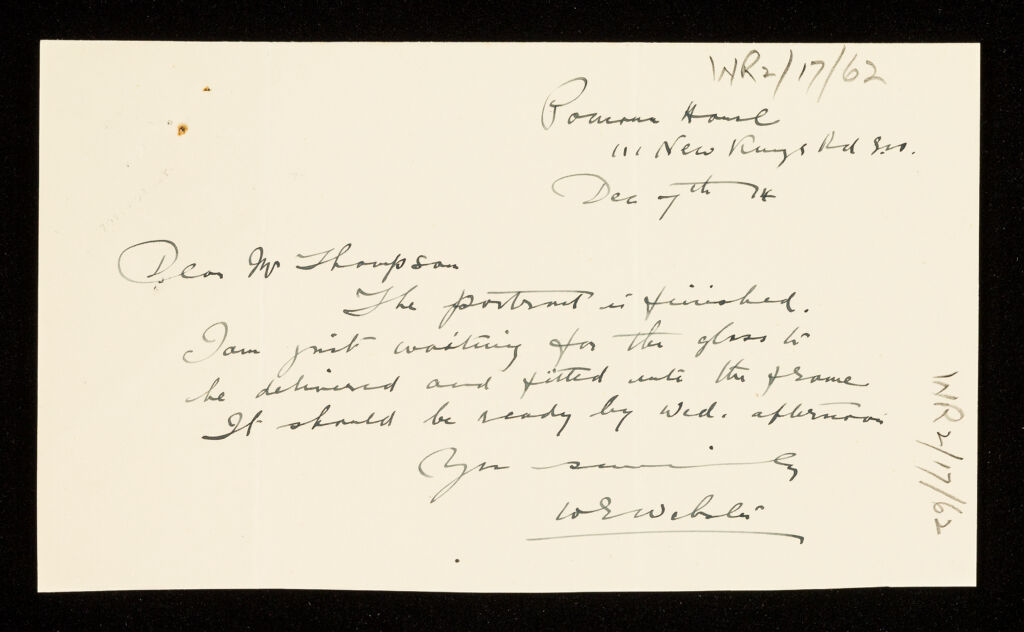 WR2/17/62
Pomona House
111 New Kings Rd S.W.
Dec 7th 14
Dear Mr Thompson
The portrait is finished.
I am just waiting for the glass to
be delivered and fitted into the frame
It should be ready by Wed. afternoon
Yrs sincerely
W E Webster
WR2/17/62